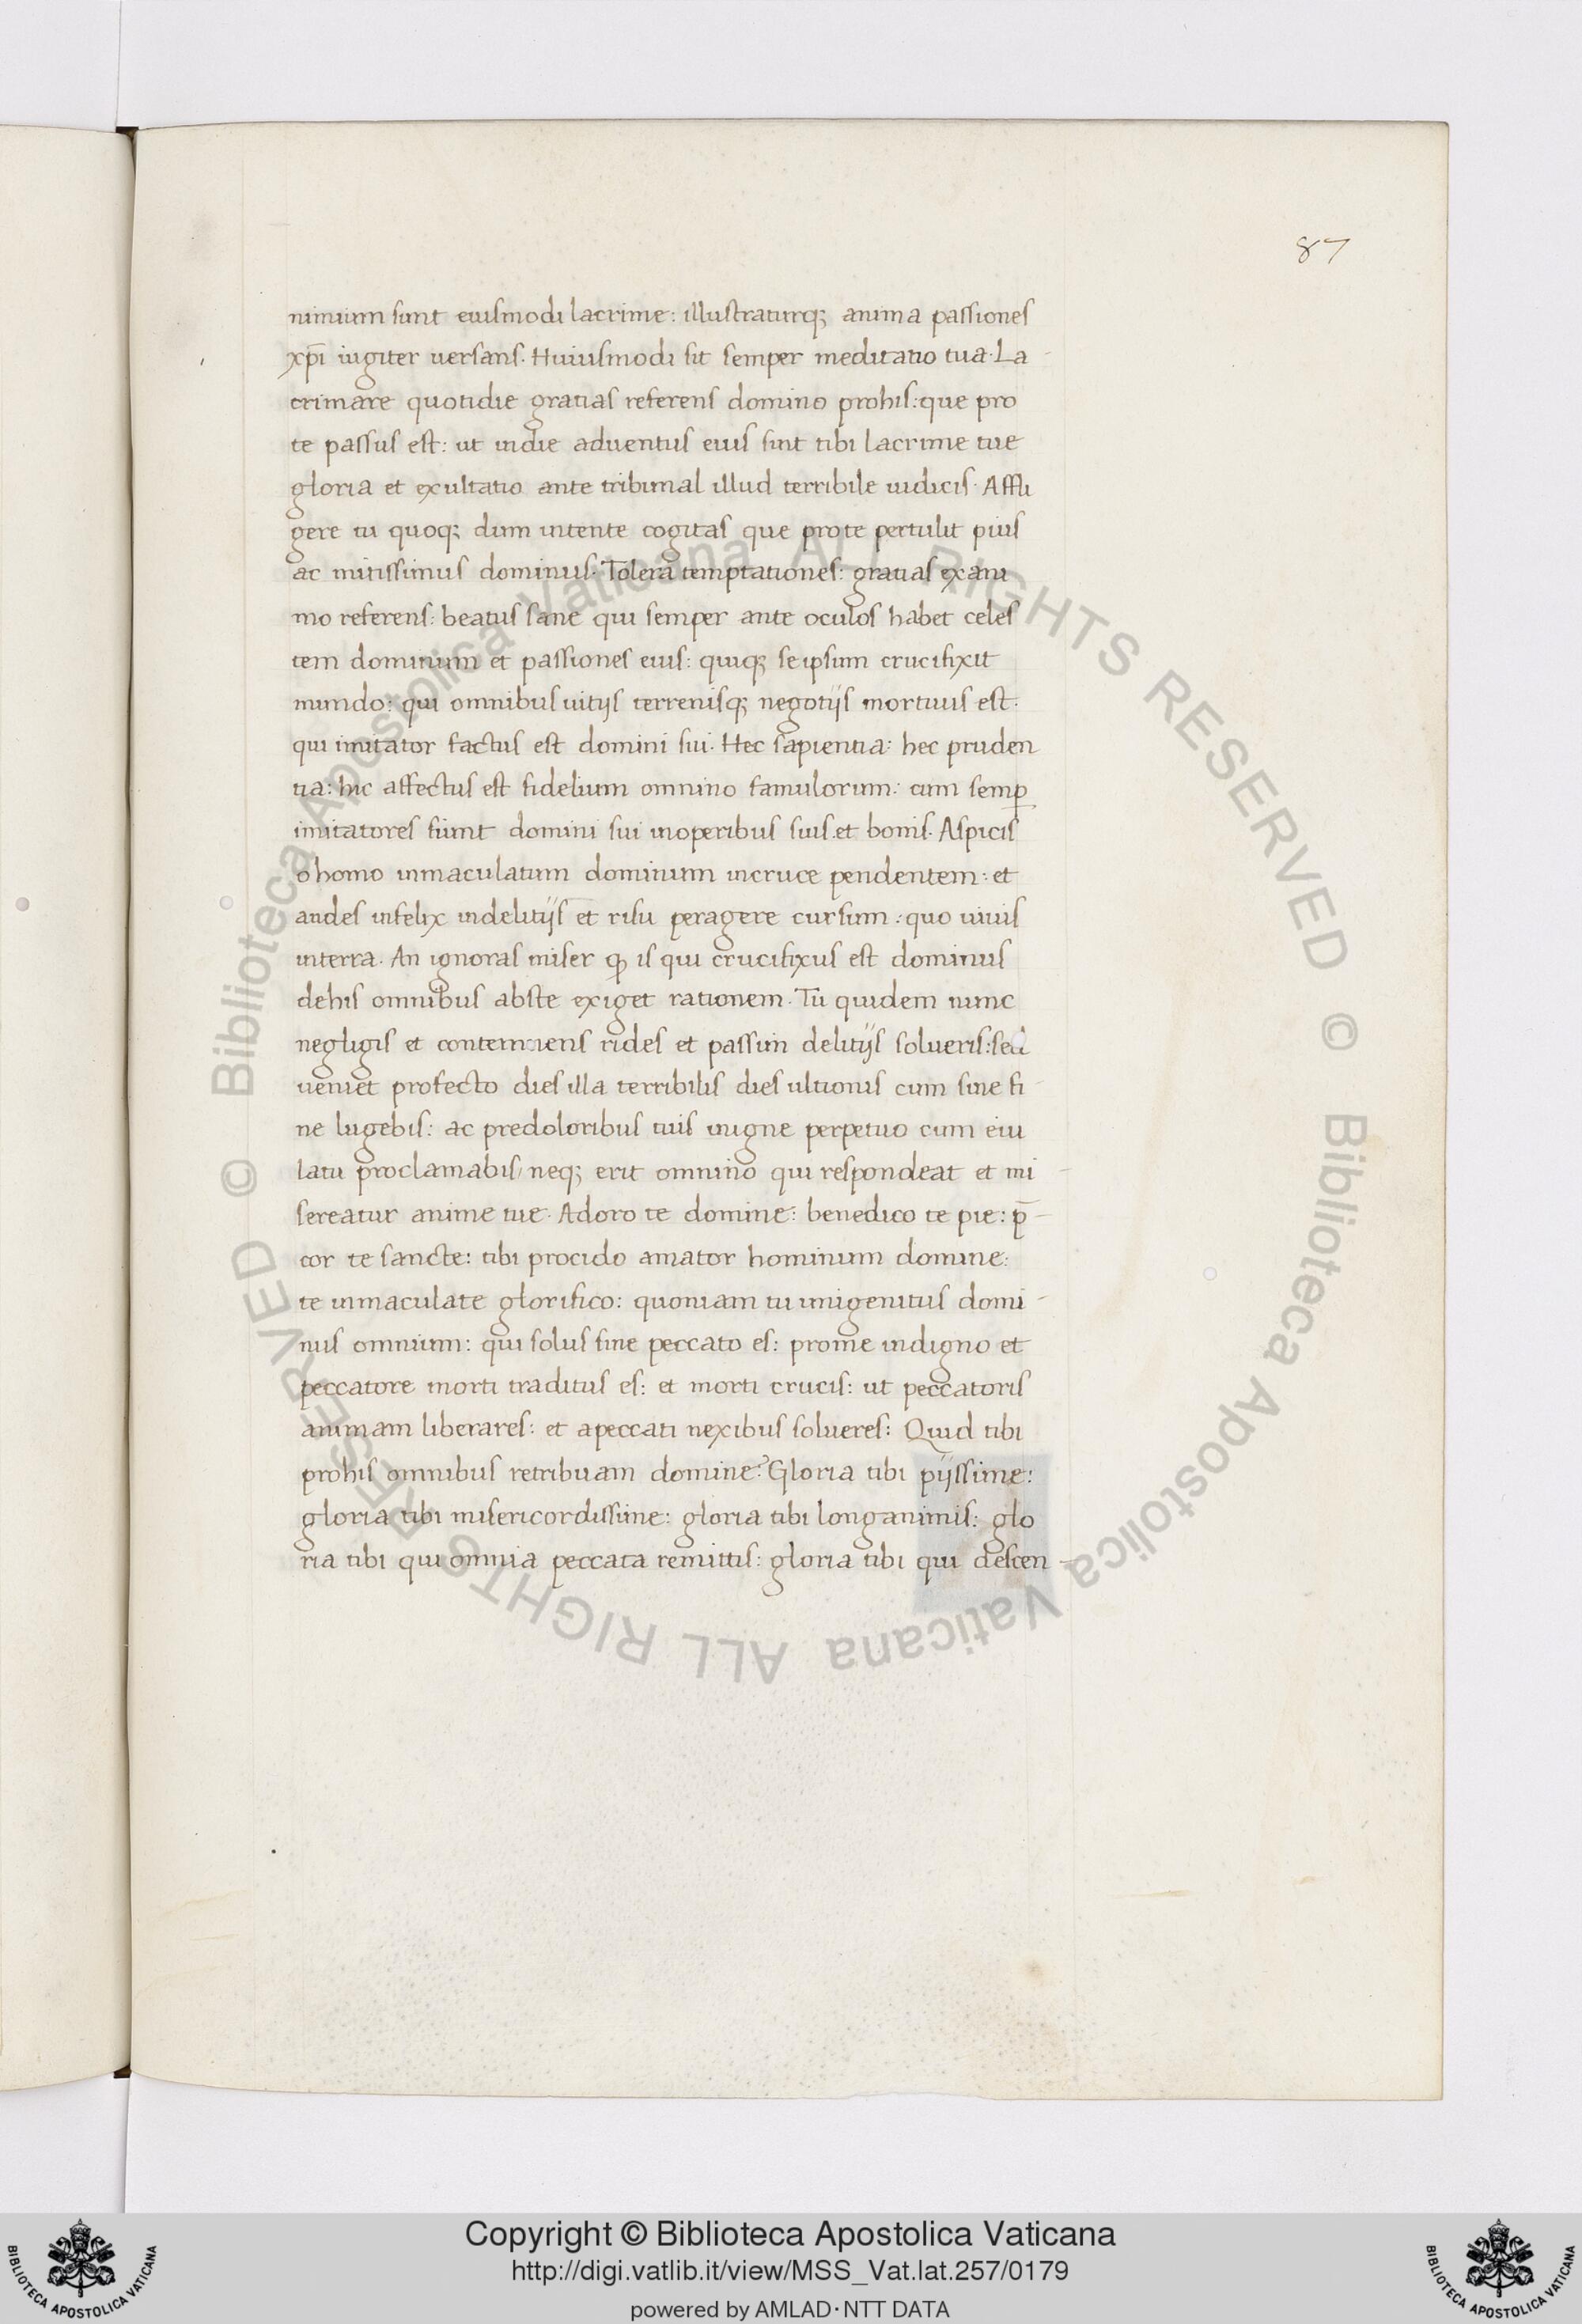 87
nimium sunt euiusmodi lacrime: illustraturq; anima passiones
xp̄i iugiter uersans. Huiusmodi sit semper meditatio tua. La-
crimare quotidie gratias referens domino prohis: que pro
te passus est: ut indie aduentus eius sint tibi lacrime tue
gloria et exultatio ante tribunal illud terribile iudicis. Affli
gere tu quoq; dum intente cogitas que prote pertulit pius
ac mitissimus dominus. Tolera temptationes: gratias exani
mo referens: beatus sane qui semper ante oculos habet celes
tem dominum et passiones eius: quiq; seipsum crucifixit
mundo: qui omnibus uitijs terrenisq; negotijs mortuus est.
qui imitator factus est domini sui. Hec sapientia: hec pruden
tia: hic affectus est fidelium omnino famulorum: cum semꝑ
imitatores fiunt domini sui inoperibus suis. et bonis. Aspicis
o homo inmaculatum dominum incruce pendentem: et
audes infelix indelitijs et risu peragere cursum: quo uiuis
interra. An ignoras miser ꝙ is qui crucifixus est dominus
dehis omnibus abste exiget rationem. Tu quidem nunc
negligis et contemnens rides et passim delitijs solueris: sed
ueniet profecto dies illa terribilis dies ultionis cum sine fi-
ne lugebis: ac predoloribus tuis inigne perpetuo cum eiu
latu proclamabis, neq; erit omnino qui respondeat et mi-
sereatur anime tue. Adoro te domine: benedico te pie: p̄-
cor te sancte: tibi procido amator hominum domine:
te inmaculate glorifico: quoniam tu unigenitus domi-
nus omnium: qui solus sine peccato es: prome indigno et
peccatore morti traditus es: et morti crucis: ut peccatoris
animam liberares: et apeccati nexibus solueres: Quid tibi
prohis omnibus retribuam domine? Gloria tibi pijssime:
gloria tibi misericordissime: gloria tibi longanimis: glo
ria tibi qui omnia peccata remittis: gloria tibi qui descen-
© Biblioteca Apostolica Vaticana ALL RIGHTS RESERVED © Biblioteca Apostolica Vaticana ALL RIGHTS RESERVED
Copyright © Biblioteca Apostolica Vaticana
http://digi.vatlib.it/view/MSS_Vat.lat.257/0179
powered by AMLAD·NTT DATA
BIBLIOTECA APOSTOLICA VATICANA
BIBLIOTECA APOSTOLICA VATICANA